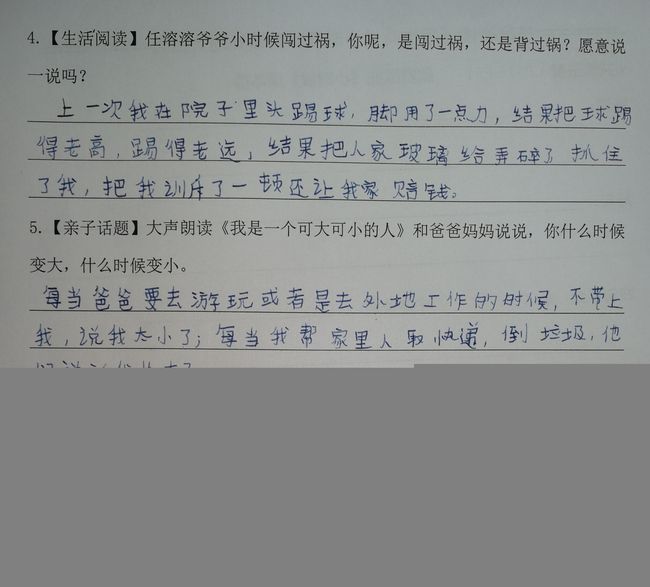 4.【生活阅读】任溶溶爷爷小时候闯过祸，你呢，是闯过祸，还是背过锅？愿意说
一说吗？
上一次我在院子里头踢球，脚用了一点力，结果把球踢
得老高，踢得老远，结果把人家玻璃给弄碎了抓住
了我，把我训斥了一顿还让我家赔钱。
5.【亲子话题】大声朗读《我是一个可大可小的人》和爸爸妈妈说说，你什么时候
变大，什么时候变小。
每当爸爸要去游玩或者是去外地工作的时候，不带上
我，说我太小了；每当我帮家里人取快递，倒垃圾，他